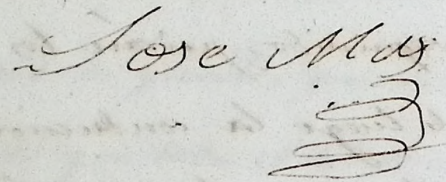 Jose Mas